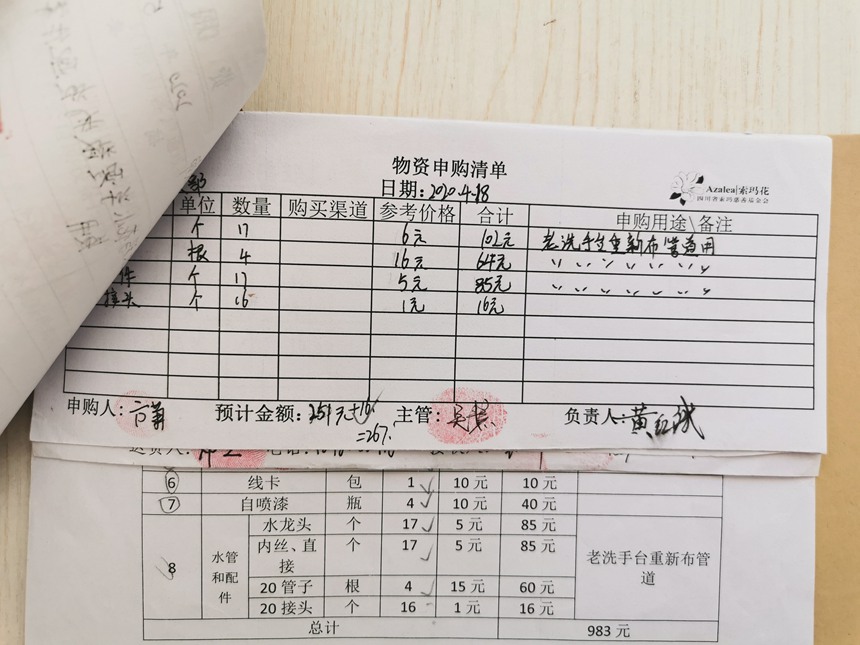 物资申购清单
日期:2020.4.18
Azalea|索玛花
四川省索玛慈善基金会
部
单位 数量 购买渠道 参考价格 合计 申购用途\备注
个 17 6元 102元 老洗手台重新布管道用
根 4 16元 64元 〃 〃 〃 〃 〃 〃
件 个 17 5元 85元 〃 〃 〃 〃 〃 〃
接头 个 16 1元 16元
申购人: 预计金额:251元+16. 主管: 负责人:黄红斌
=267.
6 线卡 包 1 10元 10元
7 自喷漆 瓶 4 10元 40元
8 水管和配件 水龙头 个 17 5元 85元 老洗手台重新布管道
内丝、直接 个 17 5元 85元
20管子 根 4 15元 60元
20接头 个 16 1元 16元
总计 983元